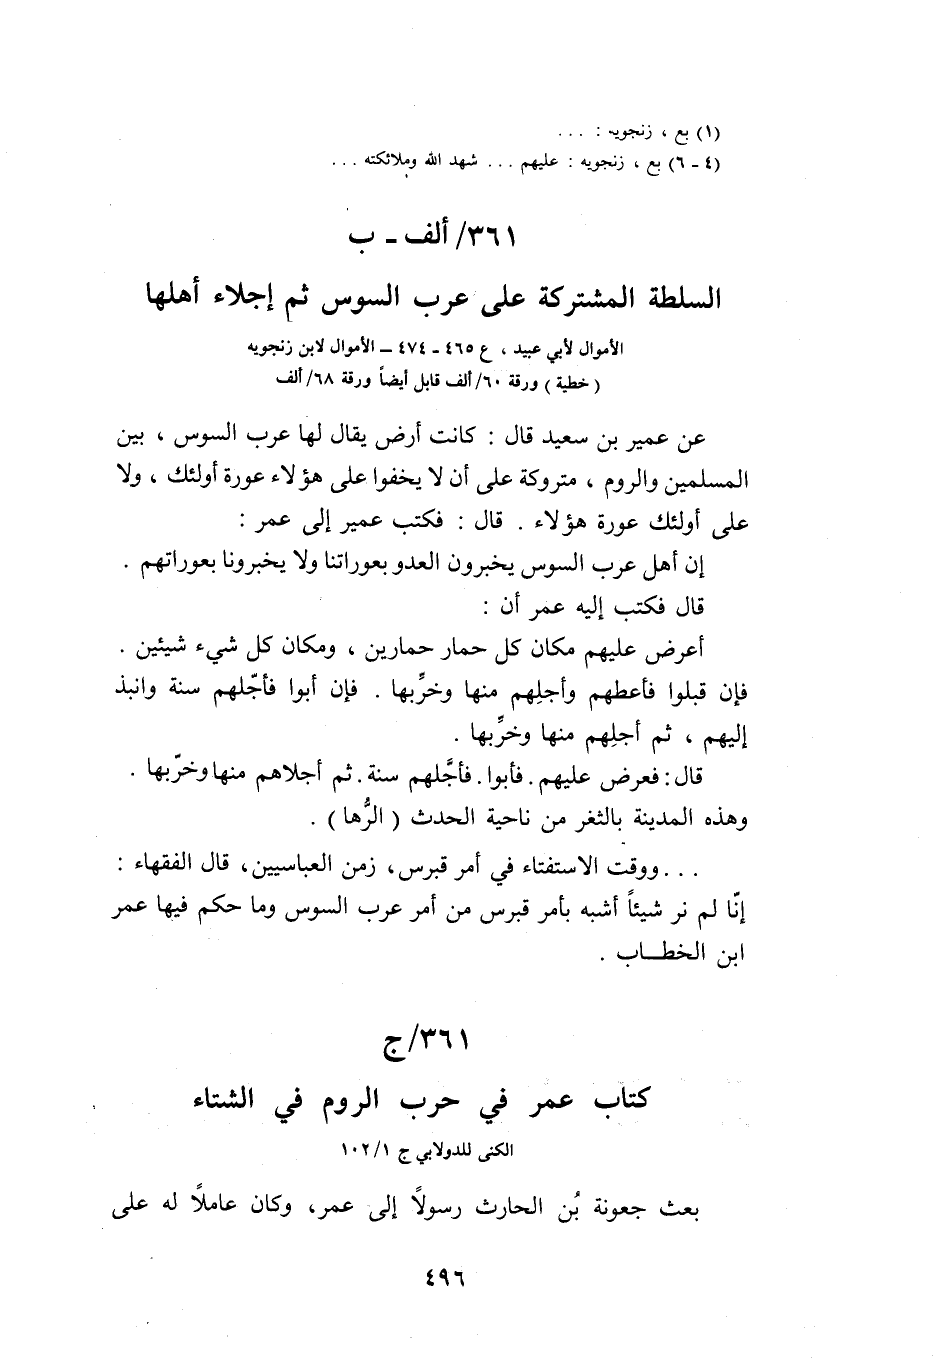 (١) بع ، زنجويه : ...
(٤ - ٦) بع ، زنجويه : عليهم ... شهد الله وملائكته ...
٣٦١/ ألف - ب
السلطة المشتركة على عرب السوس ثم إجلاء أهلها
الأموال لأبي عبيد ، ع ٤٦٥ - ٤٧٤ - الأموال لابن زنجويه
( خطية ) ورقة ٦٠/ ألف قابل أيضاً ورقة ٦٨/ ألف
عن عمير بن سعيد قال : كانت أرض يقال لها عرب السوس ، بين
المسلمين والروم ، متروكة على أن لا يخفوا على هؤلاء عورة أولئك ، ولا
على أولئك عورة هؤلاء . قال : فكتب عمير إلى عمر :
إن أهل عرب السوس يخبرون العدو بعوراتنا ولا يخبرونا بعوراتهم .
قال فكتب إليه عمر أن :
أعرض عليهم مكان كل حمار حمارين ، ومكان كل شيء شيئين .
فإن قبلوا فأعطهم وأجلِهم منها وخرِّبها . فإن أبوا فأجّلهم سنة وانبذ
إليهم ، ثم أجلِهم منها وخرِّبها .
قال : فعرض عليهم . فأبوا . فأجَّلهم سنة . ثم أجلاهم منها وخرّبها .
وهذه المدينة بالثغر من ناحية الحدث ( الرُّها ) .
... ووقت الاستفتاء في أمر قبرس، زمن العباسيين، قال الفقهاء :
إنّا لم نر شيئاً أشبه بأمر قبرس من أمر عرب السوس وما حكم فيها عمر
ابن الخطاب .
٣٦١/ج
كتاب عمر في حرب الروم في الشتاء
الكنى للدولابي ج ١٠٢/١
بعث جعونة بُن الحارث رسولاً إلى عمر، وكان عاملاً له على
٤٩٦